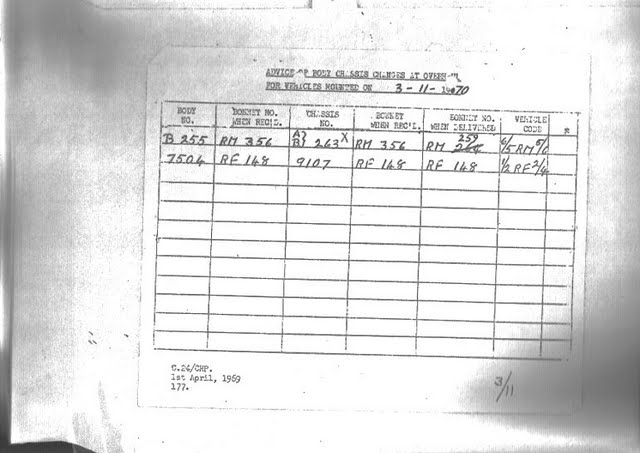 ADVICE OF BODY CHASSIS CHANGES AT OVERHAUL
FOR VEHICLES MOUNTED ON 3-11-1970
BODY NO. BONNET NO. WHEN REC'D. CHASSIS NO. BONNET WHEN REC'D. BONNET NO. WHEN DELIVERED VEHICLE CODE
B 255 RM 356 263 X RM 356 RM 259 6/5 RM 5/6
7504 RF 148 9107 RF 148 RF 148 1/2 RF 2/4
C.24/CHP.
1st April, 1969
177.
3/11